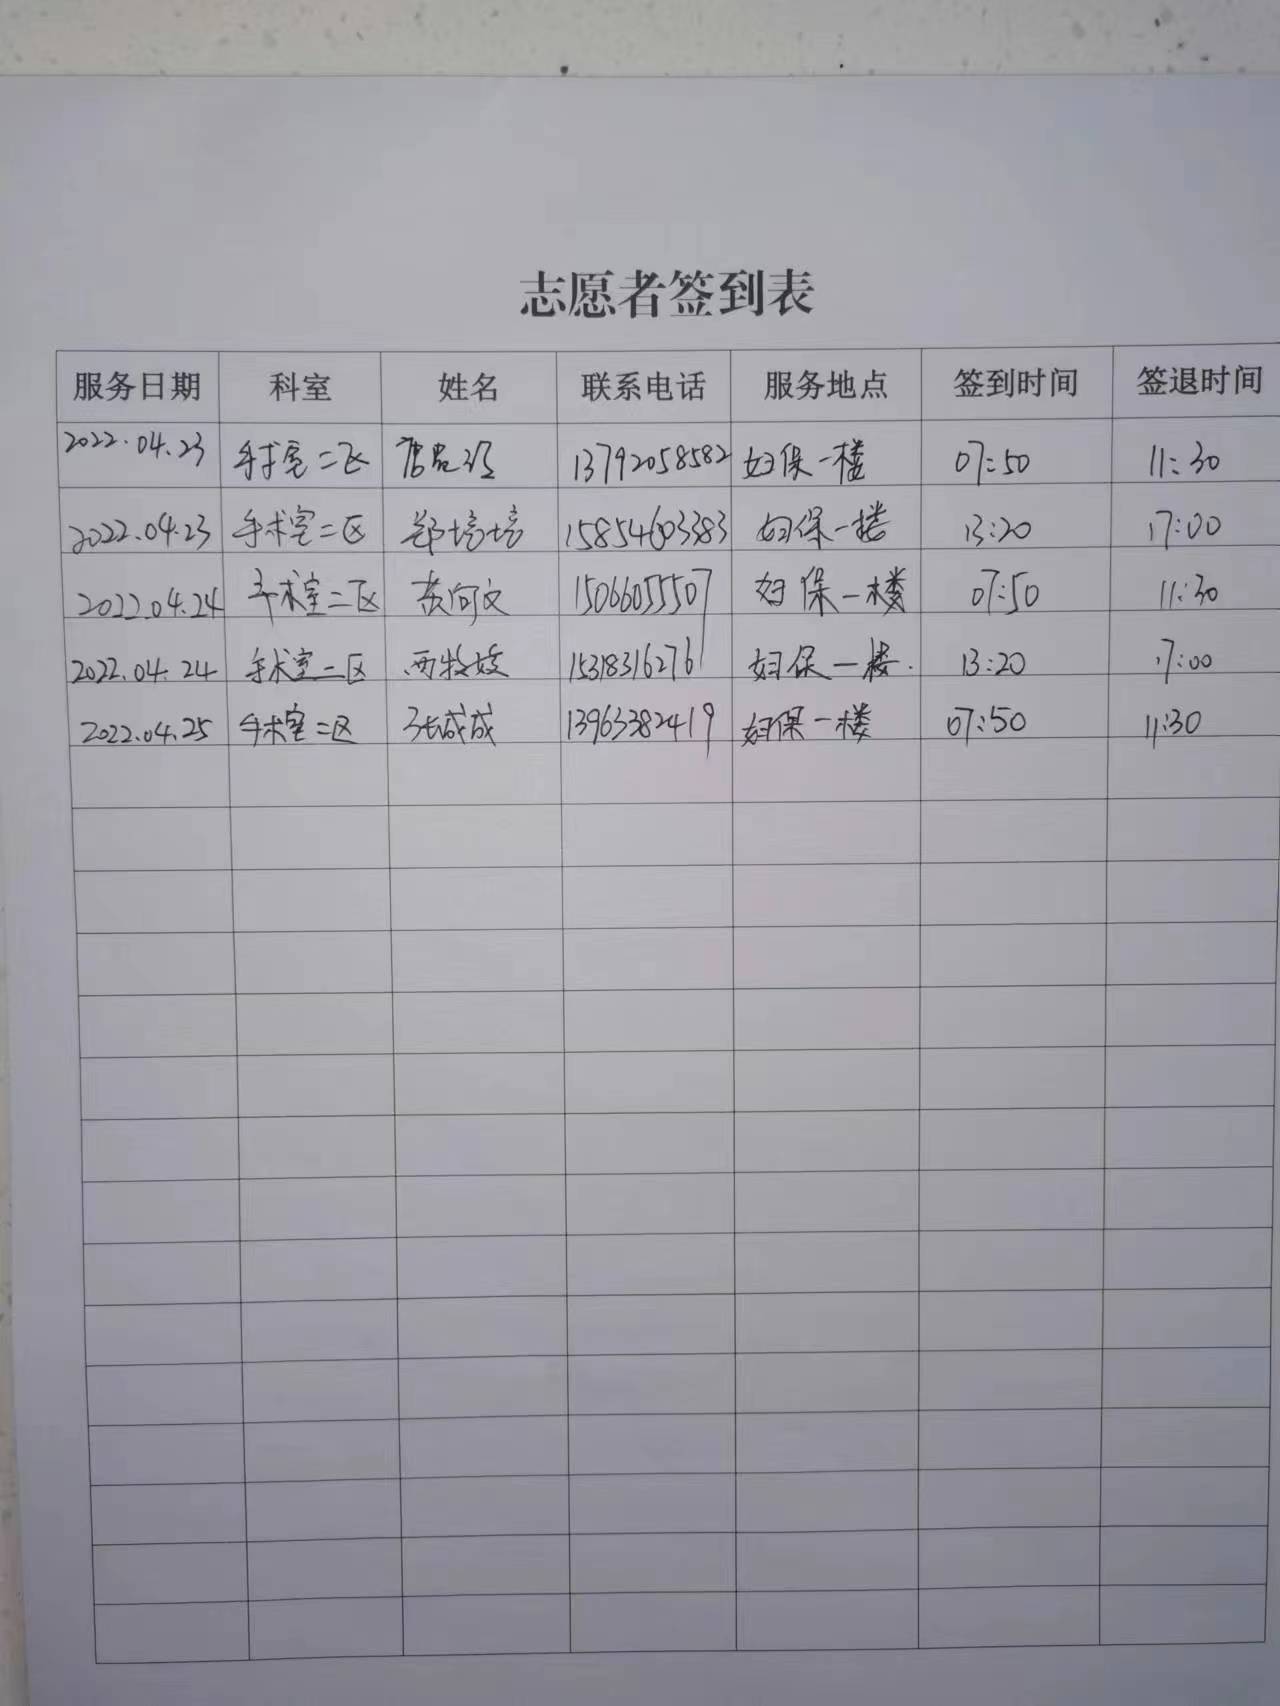 志愿者签到表
服务日期 科室 姓名 联系电话 服务地点 签到时间 签退时间
2022.04.23 手术室二区 13792058582 妇保一楼 07:50 11:30
2022.04.23 手术室二区 郑培培 15854603383 妇保一楼 13:20 17:00
2022.04.24 手术室二区 黄向文 15066055507 妇保一楼 07:50 11:30
2022.04.24 手术室二区 15318316276 妇保一楼. 13:20 17:00
2022.04.25 手术室二区 张成成 13963382419 妇保一楼 07:50 11:30